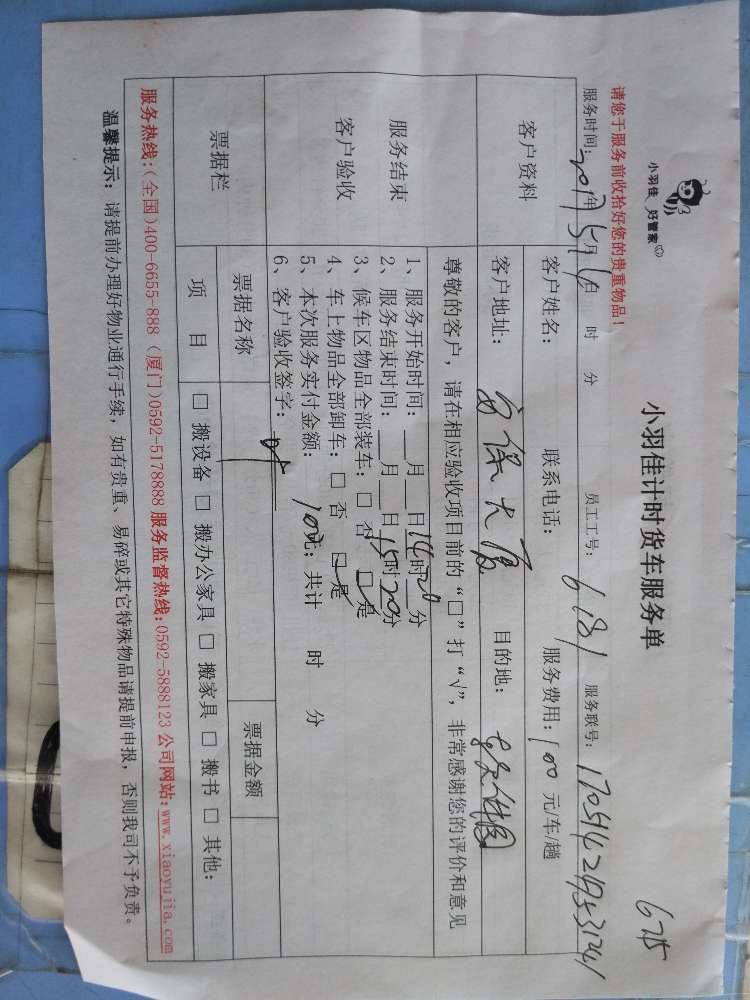 675
小羽佳 好管家
小羽佳计时货车服务单
请您于服务前收拾好您的贵重物品！
服务时间：2017年5月16日 时 分 员工工号：6181 服务联号：
客户资料 客户姓名： 联系电话： 服务费用：100元/车/趟
客户地址： 目的地：
服务结束 客户验收
尊敬的客户，请在相应验收项目前的“□”打“√”，非常感谢您的评价和意见
1、服务开始时间：__月__日14时20分
2、服务结束时间：__月__日15时20分
3、候车区物品全部装车：□ 否 □ 是
4、车上物品全部卸车：□ 否 □ 是
5、本次服务实付金额：100元；共计 时 分
6、客户验收签字：
票据栏 票据名称 票据金额
项 目 □ 搬设备 □ 搬办公家具 □ 搬家具 □ 搬书 □ 其他：
服务热线：(全国)400-6655-888 (厦门)0592-5178888 服务监督热线：0592-5888123 公司网站：www.xiaoyujia.com
温馨提示：请提前办理好物业通行手续，如有贵重、易碎或其它特殊物品请提前申报，否则我司不予负责。